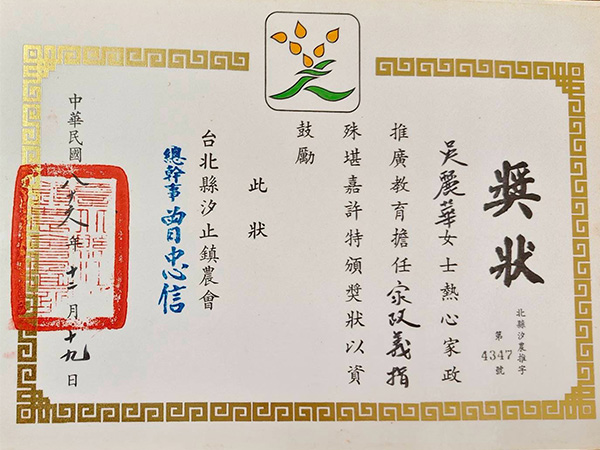 獎狀
北縣汐農推字
第4347號
吳麗華女士熱心家政
推廣教育擔任家政義指
殊堪嘉許特頒獎狀以資
鼓勵
此狀
台北縣汐止鎮農會
總幹事曾忠信
中華民國八十八年十二月十九日